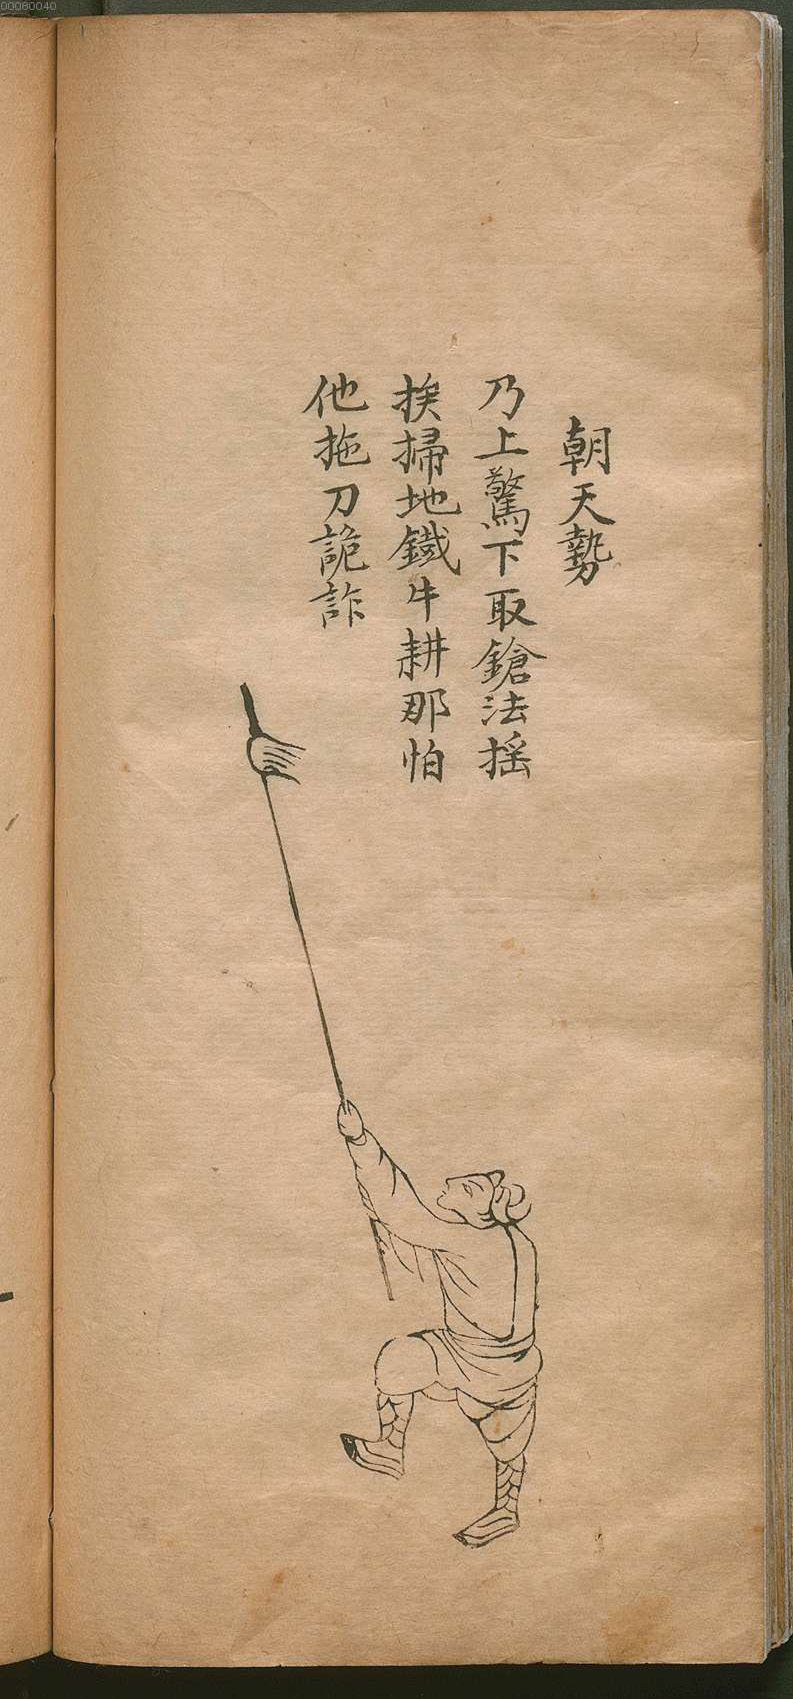 00080040
朝天勢
乃上驚下取鎗法搖
挨掃地鐵牛耕那怕
他拖刀詭詐